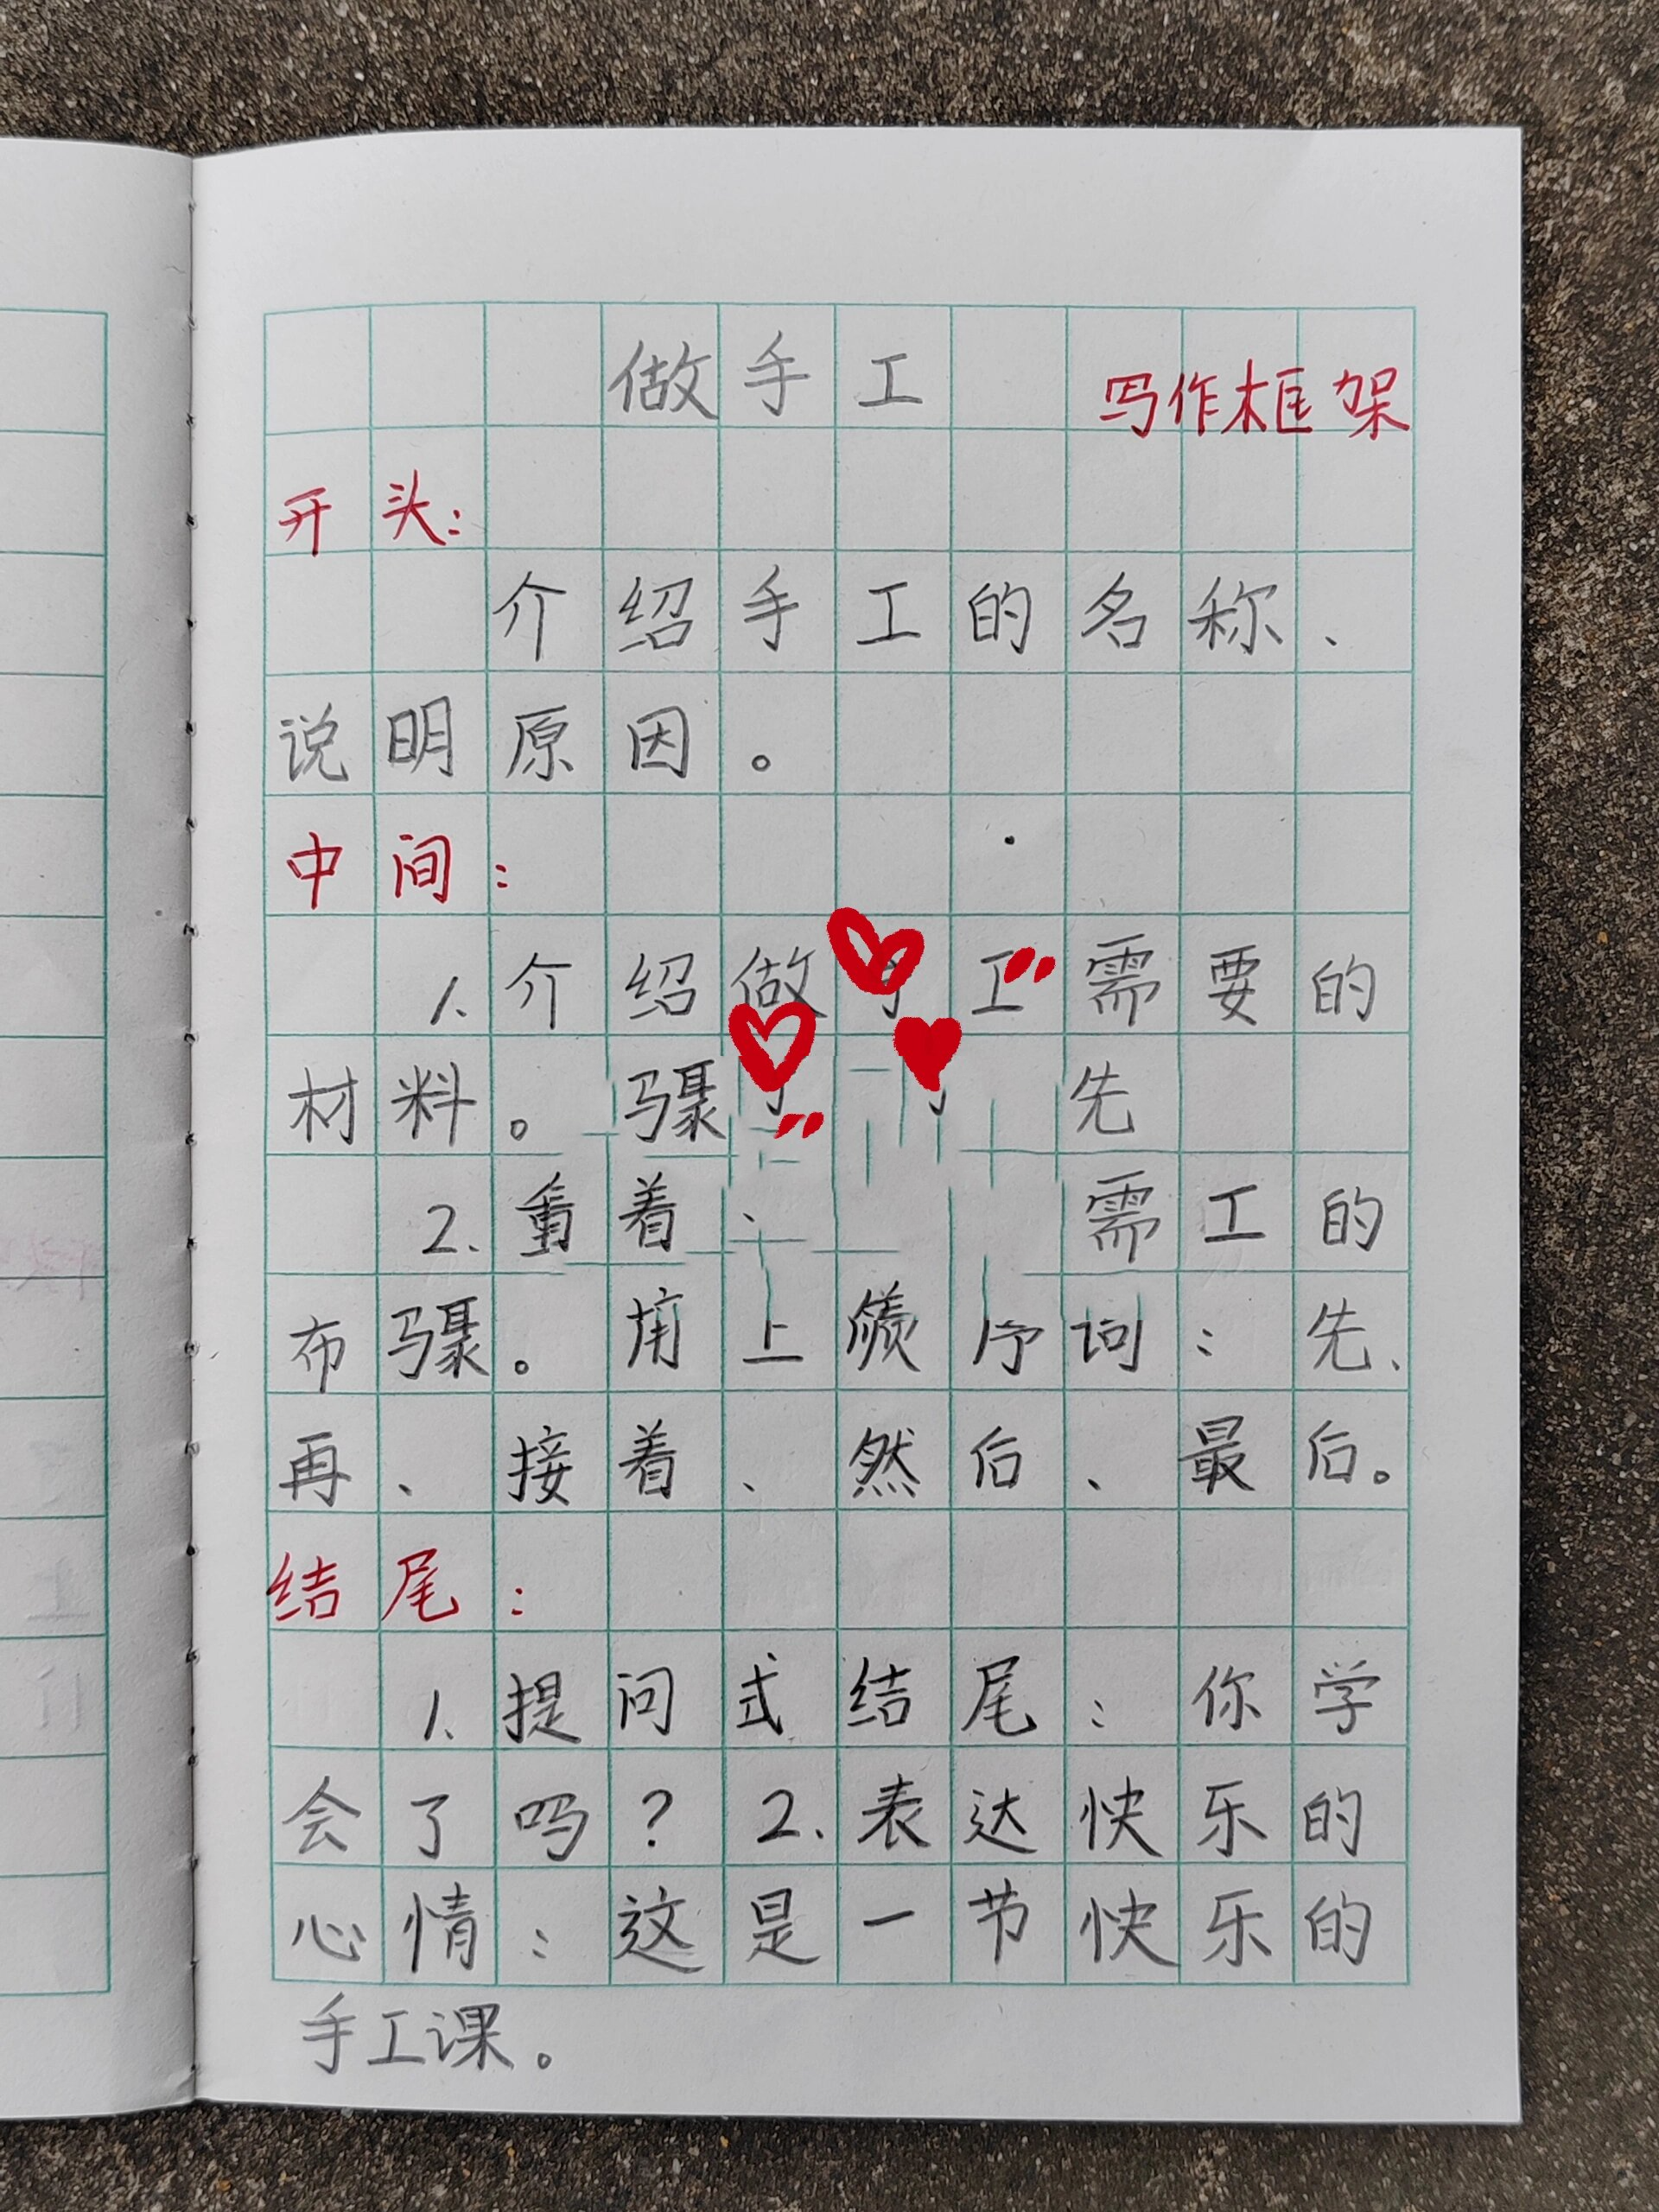 做手工
写作框架
开头:
介绍手工的名称、
说明原因。
中间:
1.介绍做 工需要的
材料。 骤 先
2. 着、 需工的
布骤。 上 序词:先、
再、接着、然后、最后。
结尾:
1.提问式结尾:你学
会了吗?2.表达快乐的
心情:这是一节快乐的
手工课。